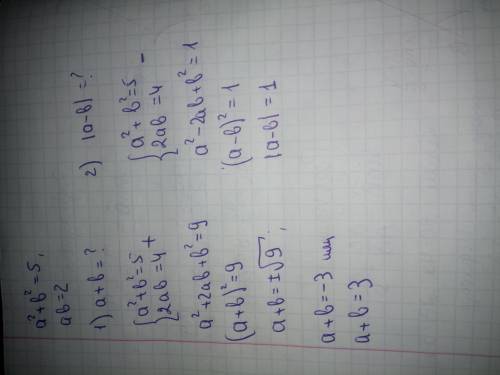 a² + b² = 5,
ab = 2
1) a + b = ?
{ a² + b² = 5
{ 2ab = 4 +
a² + 2ab + b² = 9
(a + b)² = 9
a + b = ±√9;
a + b = -3 или
a + b = 3
2) |a - b| = ?
{ a² + b² = 5
{ 2ab = 4 -
a² - 2ab + b² = 1
(a - b)² = 1
|a - b| = 1